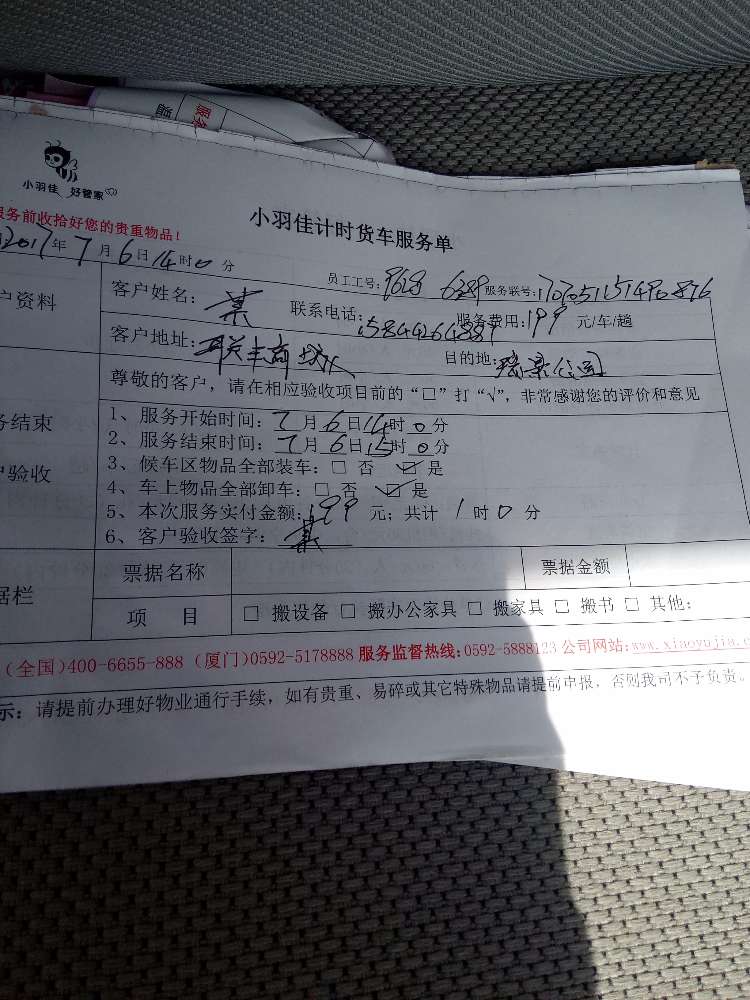 服务
小羽佳 好管家
服务前收拾好您的贵重物品！
小羽佳计时货车服务单
2017年7月6日14时0分
员工工号：9628 6289 服务联号：
户资料
客户姓名：某 联系电话：15844264889 服务费用：199 元/车/趟
客户地址： 目的地：
尊敬的客户，请在相应验收项目前的“□”打“√”，非常感谢您的评价和意见
务结束
户验收
1、服务开始时间：7月6日14时0分
2、服务结束时间：7月6日15时0分
3、候车区物品全部装车：□ 否 ☑ 是
4、车上物品全部卸车：□ 否 ☑ 是
5、本次服务实付金额：199 元；共计 1 时 0 分
6、客户验收签字：某
据栏
票据名称 票据金额
项 目 □ 搬设备 □ 搬办公家具 □ 搬家具 □ 搬书 □ 其他：
(全国)400-6655-888 (厦门)0592-5178888 服务监督热线：0592-5888123 公司网站：www.xiaoyujia.c
示：请提前办理好物业通行手续，如有贵重、易碎或其它特殊物品请提前申报，否则我司不予负责。